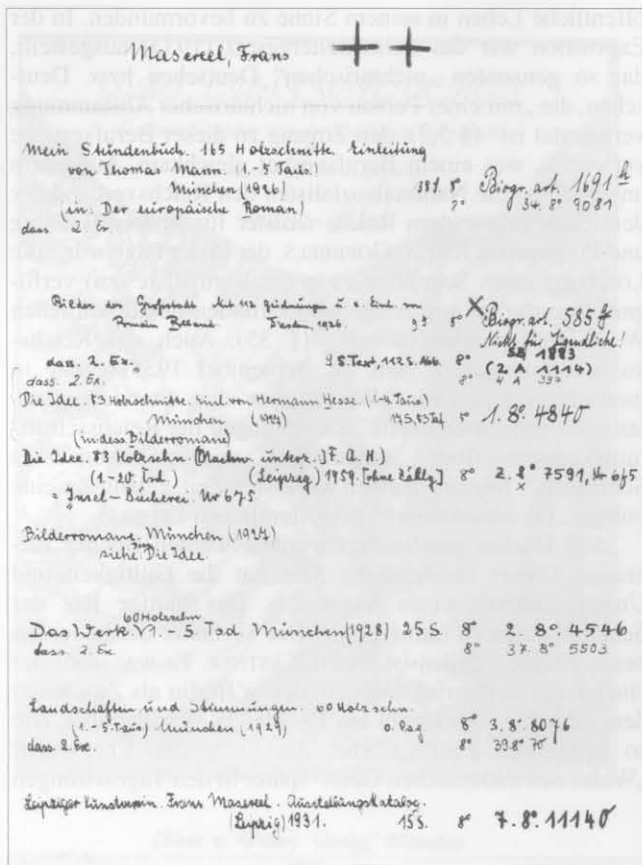 Masereel, Frans ++
Mein Stundenbuch. 165 Holzschnitte. Einleitung
von Thomas Mann. (1.-5. Taus.)
München (1926) 8° Biogr. art. 1691
(in: Der europäische Roman.) 34. 8° 9081
dass 2. Ex.
Bilder der Großstadt. Mit 112 Zeichnungen u. e. von
1926. 8° X Biogr. art. 585
Nicht für Jugendliche!
dass. 2. Ex. 9 S. Text, 112 S. Abb. 8° 1883
(2 A 1114)
dass. 2. Ex 8° 4 A
Die Idee. 83 Holzschnitte. Einl. von Hermann Hesse. (1.-4. Taus)
München (1927) 8° 1. 8° 4840
(in dess. Bilderromane)
Die Idee. 83 Holzschn. (Nachw. unterz.: F. A. H.)
(1-20. Tsd.) (Leipzig) 1959. [ohne Zählg] 8° 2. 8° 7591, Nr 675
= Insel-Bücherei. Nr 675 x
Bilderromane. München (1927)
siehe: Die Idee.
60 Holzschn.
Das Werk. 1.-5. Tsd München (1928) 25 S. 8° 2. 8°. 4546
dass. 2. Ex 8° 37. 8° 5503
Landschaften und Stimmungen. 60 Holzschn.
(1.-5. Taus) München (1929) o. Pag 8° 3. 8° 8076
dass. 2. Ex. 8° 39. 8° 70
Leipziger Kunstverein. Frans Masereel. Ausstellungskatalog.
(Leipzig) 1931. 15 S. 8° 7. 8°. 11140